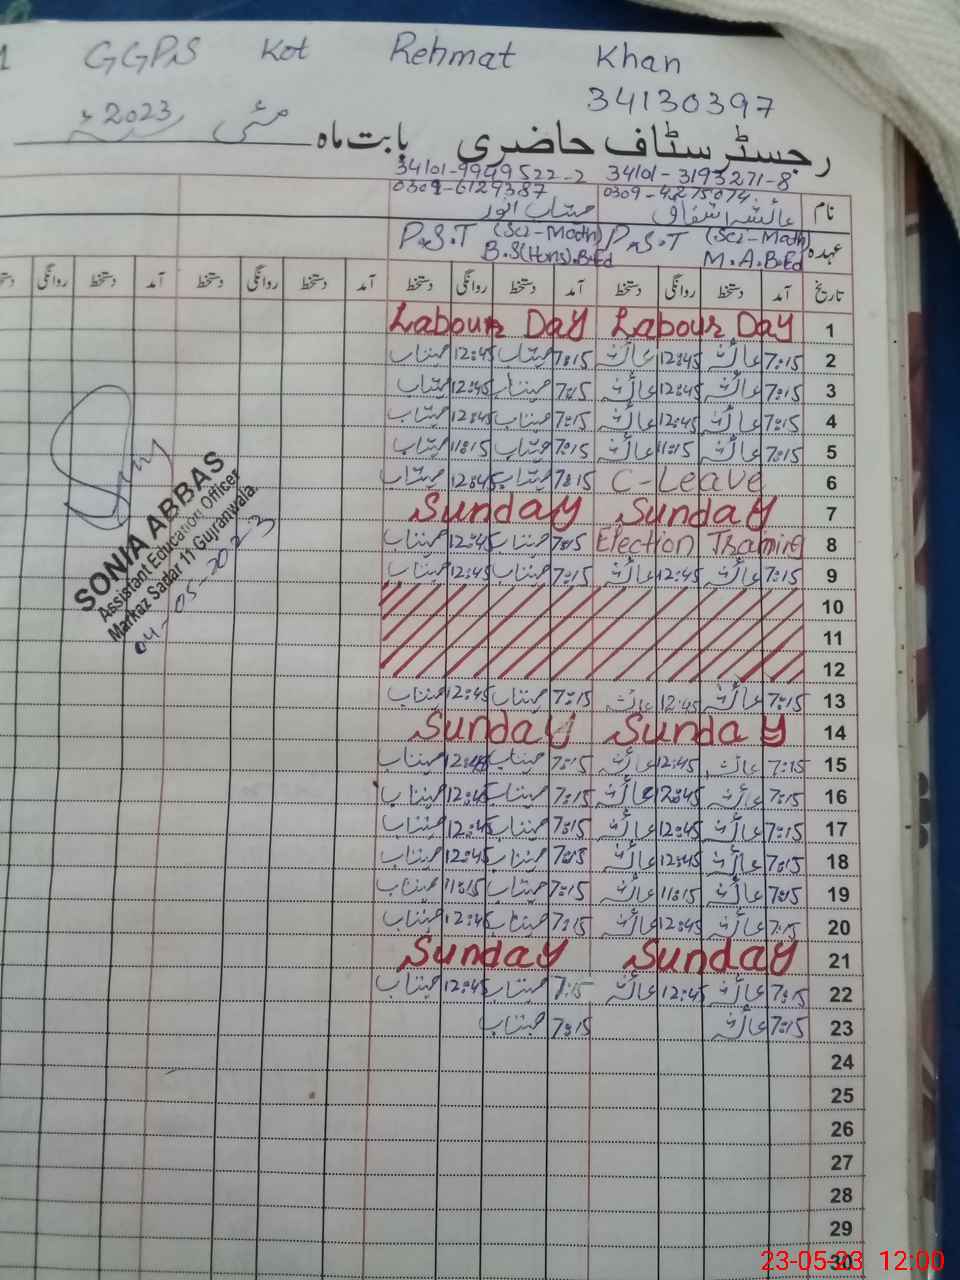 GGPS Kot Rehmat Khan
34130397
رجسٹر سٹاف حاضری بابت ماہ مئی 2023ء
34101-3193271-8 34101-9949522-2
0309-4275074 0309-6129387
نام عائشہ اشفاق مہتاب انور
عہدہ P.S.T (Sci-Math) M.A.B.Ed P.S.T (Sci-Math) B.S(Hons).B.Ed
تاریخ آمد دستخط روانگی دستخط آمد دستخط روانگی دستخط آمد دستخط روانگی دستخط آمد دستخط روانگی
1 Labour Day Labour Day
2 7:15 عائشہ 12:45 عائشہ 7:15 مہتاب 12:45 مہتاب
3 7:15 عائشہ 12:45 عائشہ 7:15 مہتاب 12:45 مہتاب
4 7:15 عائشہ 12:45 عائشہ 7:15 مہتاب 12:45 مہتاب
5 7:15 عائشہ 11:15 عائشہ 7:15 مہتاب 11:15 مہتاب
6 C-Leave 7:15 مہتاب 12:45 مہتاب
7 Sunday Sunday
8 Election Training 7:15 مہتاب 12:45 مہتاب
9 7:15 عائشہ 12:45 عائشہ 7:15 مہتاب 12:45 مہتاب
10
11
12
13 7:15 عائشہ 12:45 عائشہ 7:15 مہتاب 12:45 مہتاب
14 Sunday Sunday
15 7:15 عائشہ 12:45 عائشہ 7:15 مہتاب 12:45 مہتاب
16 7:15 عائشہ 12:45 عائشہ 7:15 مہتاب 12:45 مہتاب
17 7:15 عائشہ 12:45 عائشہ 7:15 مہتاب 12:45 مہتاب
18 7:15 عائشہ 12:45 عائشہ 7:15 مہتاب 12:45 مہتاب
19 7:15 عائشہ 11:15 عائشہ 7:15 مہتاب 11:15 مہتاب
20 7:15 عائشہ 12:45 عائشہ 7:15 مہتاب 12:45 مہتاب
21 Sunday Sunday
22 7:15 عائشہ 12:45 عائشہ 7:15 مہتاب 12:45 مہتاب
23 7:15 عائشہ 7:15 مہتاب
24
25
26
27
28
29
30
SONIA ABBAS
Assistant Education Officer
Markaz Sadar 11 Gujranwala.
04-05-2023
23-05-23 12:00